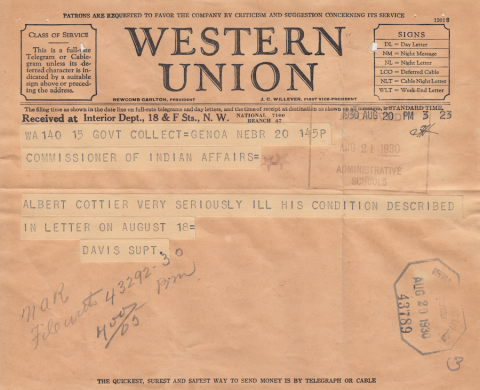 PATRONS ARE REQUESTED TO FAVOR THE COMPANY BY CRITICISM AND SUGGESTION CONCERNING ITS SERVICE
CLASS OF SERVICE
This is a full-rate
Telegram or Cable-
gram unless its de-
ferred character is in-
dicated by a suitable
sign above or preced-
ing the address.
WESTERN
UNION
NEWCOMB CARLTON, PRESIDENT
J. C. WILLEVER, FIRST VICE-PRESIDENT
SIGNS
DL = Day Letter
NM = Night Message
NL = Night Letter
LCO = Deferred Cable
NLT = Cable Night Letter
WLT = Week-End Letter
The filing time as shown in the date line on full-rate telegrams and day letters, and the time of receipt at destination as shown on all messages, is STANDARD TIME.
Received at Interior Dept., 18 & F Sts., N. W.
NATIONAL 7100
BRANCH 47
1930 AUG 20 PM 3 23
WA140 15 GOVT COLLECT=GENOA NEBR 20 145P
COMMISSIONER OF INDIAN AFFAIRS=
AUG 21 1930
ADMINISTRATIVE
SCHOOLS
ALBERT COTTIER VERY SERIOUSLY ILL HIS CONDITION DESCRIBED
IN LETTER ON AUGUST 18=
DAVIS SUPT.
File with 43292-30
AUG 21 1930
43789
THE QUICKEST, SUREST AND SAFEST WAY TO SEND MONEY IS BY TELEGRAPH OR CABLE